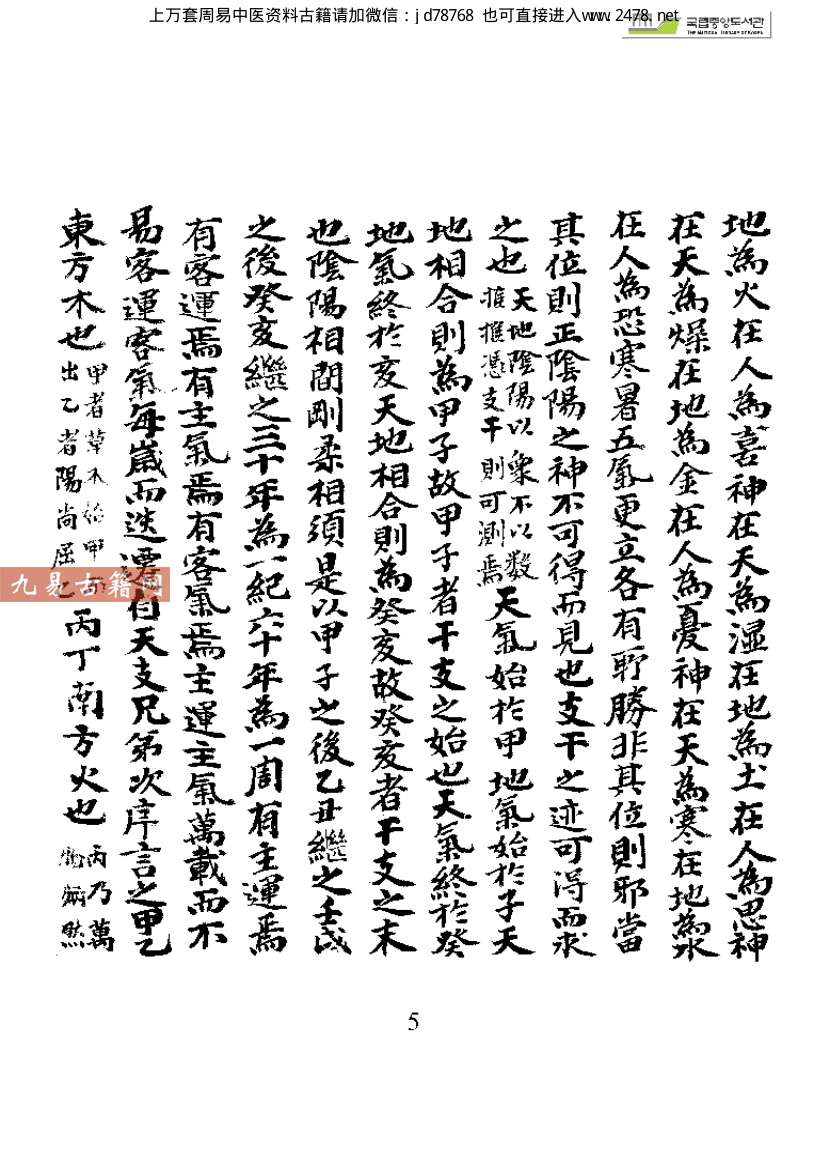 上万套周易中医资料古籍请加微信：jd78768 也可直接进入www.2478.net
국립중앙도서관
THE NATIONAL LIBRARY OF KOREA
地為火在人為喜神在天為湿在地為土在人為思神
在天為燥在地為金在人為憂神在天為寒在地為水
在人為恐寒暑五氣更立各有所勝非其位則邪當
其位則正陰陽之神不可得而見也支干之迹可得而求
之也天地陰陽以象不以数推推憑支干則可測焉天氣始於甲地氣始於子天
地相合則為甲子故甲子者干支之始也天氣終於癸
地氣終於亥天地相合則為癸亥故癸亥者干支之末
也陰陽相間剛柔相須是以甲子之後乙丑繼之壬戌
之後癸亥繼之三十年為一紀六十年為一周有主運焉
有客運焉有主氣焉有客氣焉主運主氣萬載而不
易客運客氣每歲而迭遷自天支兄第次序言之甲乙
東方木也甲者草木始甲出乙者陽尚屈乙丙丁南方火也丙乃萬物炳然
九易古籍网
5